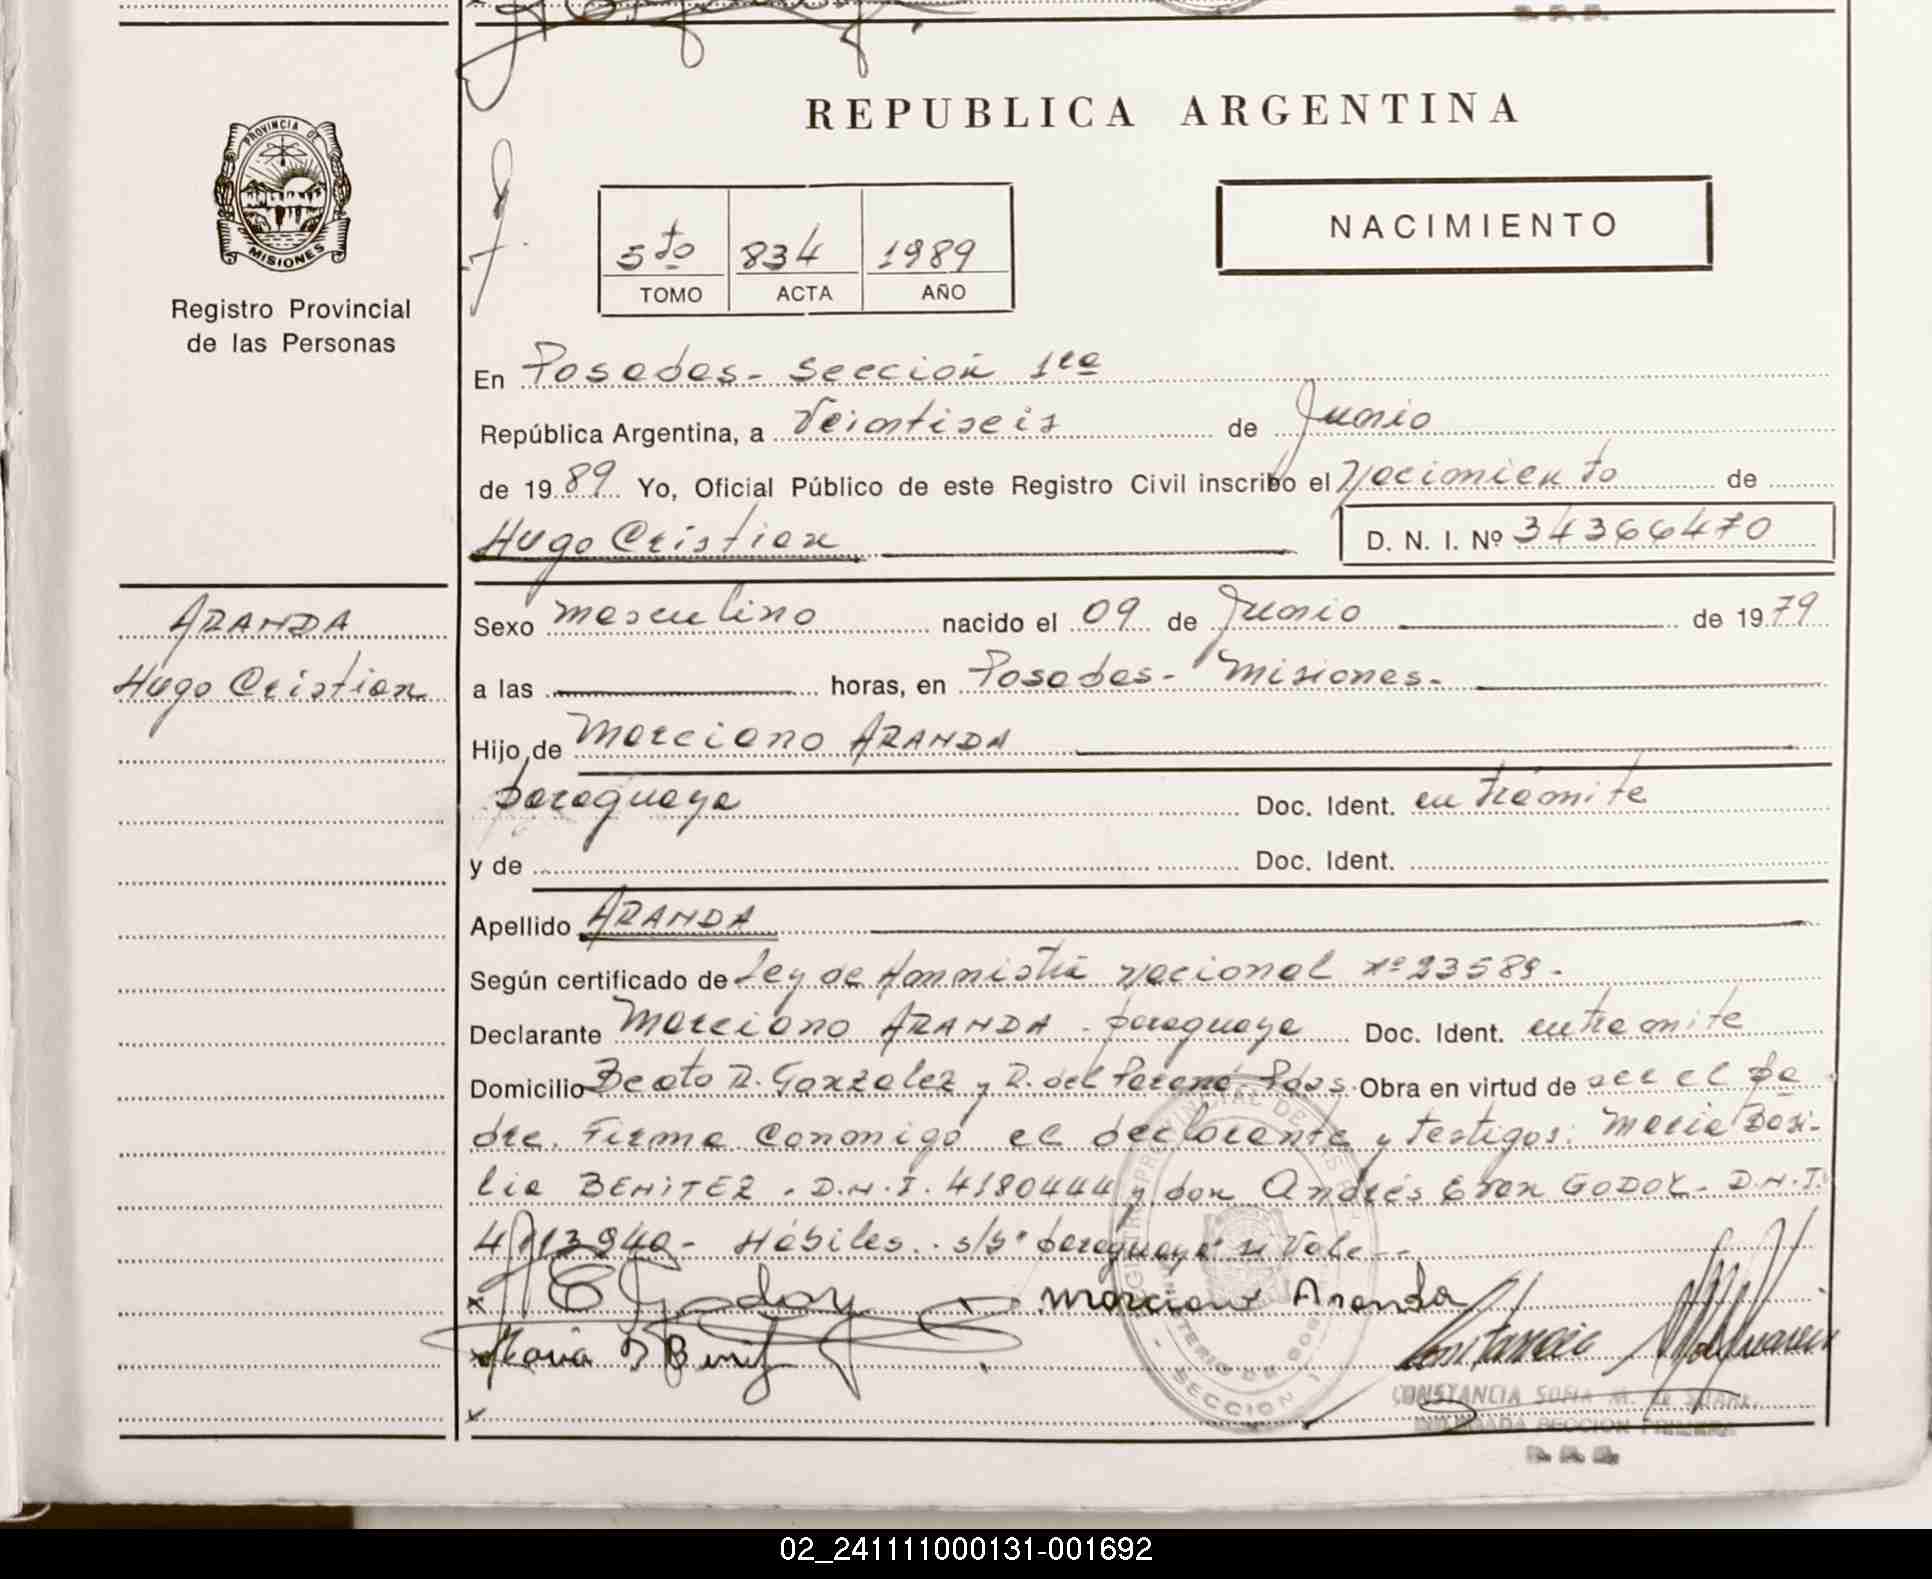 REPUBLICA ARGENTINA
PROVINCIA DE
MISIONES
Registro Provincial
de las Personas
5to 834 1989
TOMO ACTA AÑO
NACIMIENTO
En Posadas - Sección 1ra
República Argentina, a Veintiseis de Junio
de 1989 Yo, Oficial Público de este Registro Civil inscribo el Nacimiento de
Hugo Cristian D. N. I. Nº 34366470
ARANDA
Hugo Cristian
Sexo masculino nacido el 09 de Junio de 1979
a las horas, en Posadas - Misiones -
Hijo de Marciano ARANDA
paraguaya Doc. Ident. en trámite
y de Doc. Ident.
Apellido ARANDA
Según certificado de Ley de Amnistía Nacional Nº 23589 -
Declarante Marciano ARANDA - paraguaya Doc. Ident. en tramite
Domicilio Beato R. Gonzalez y R. del Paraná Pdas. Obra en virtud de ser el pa
dre. Firma conmigo el declarante y testigos: Maria Basi-
lia BENITEZ . D.N.I. 4180444 y don Andrés Evan GODOY - D.N.I.
- Hábiles. s/b "paraguaya" si Vale -
x E Godoy Marciano Aranda
x Maria B Benitez Constancia
x
CONSTANCIA SOFIA M. DE
SECCION PRIMERA
SECCION 1
02_241111000131-001692